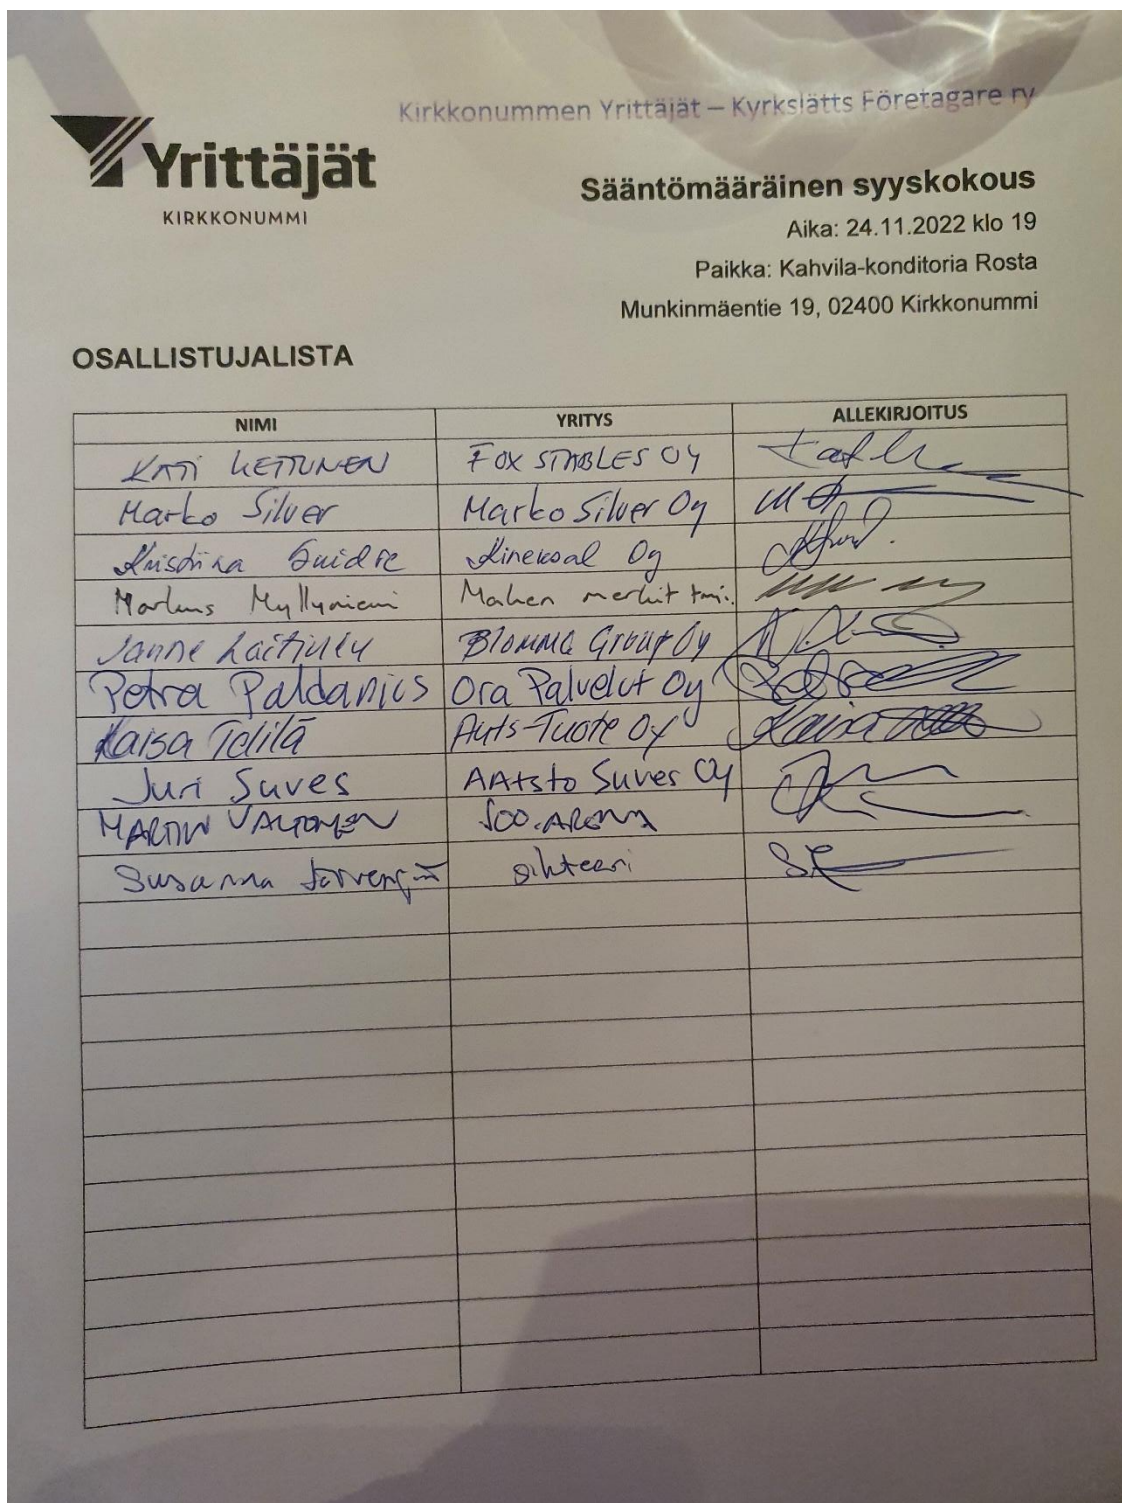 Kirkkonummen Yrittäjät – Kyrkslätts Företagare ry
Yrittäjät
KIRKKONUMMI
Sääntömääräinen syyskokous
Aika: 24.11.2022 klo 19
Paikka: Kahvila-konditoria Rosta
Munkinmäentie 19, 02400 Kirkkonummi
OSALLISTUJALISTA
NIMI YRITYS ALLEKIRJOITUS
KATI KETTUNEN FOX STABLES OY
Marko Silver Marko Silver Oy
Kristiina Oy
Markus Myllyniemi Maken merkit tmi.
Janne Laitinen Blomma Group Oy
Petra Paldanius Ora Palvelut Oy
Kaisa Oy Kaisa
Juri Suves AAtsto Suves Oy
MARTIN VALTONEN
Susanna sihteeri